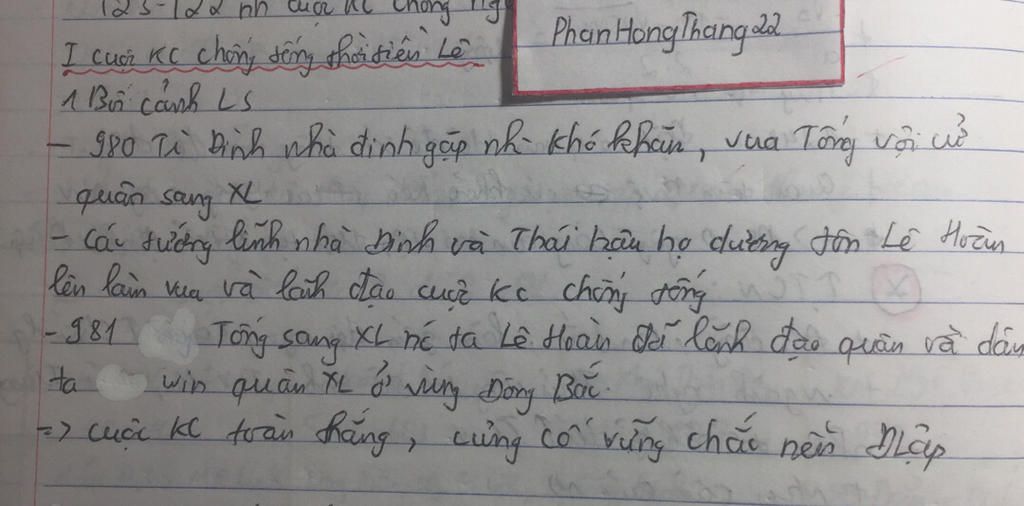 PhanHongThang22
I cuộc KC chống tống thời tiền Lê
1 Bối cảnh LS
- 980 Tì Đình nhà đinh gặp nh~ khó khăn, vua Tống vội cử
quân sang XL
- Các tướng lĩnh nhà Đinh và Thái hậu họ dương tôn Lê Hoàn
lên làm vua và lãnh đạo cuộc KC chống tống
- 981 Tống sang XL nc ta Lê Hoàn đã lãnh đạo quân và dân
ta win quân XL ở vùng Đông Bắc.
=> cuộc KC toàn thắng, củng cố vững chắc nền ĐLập